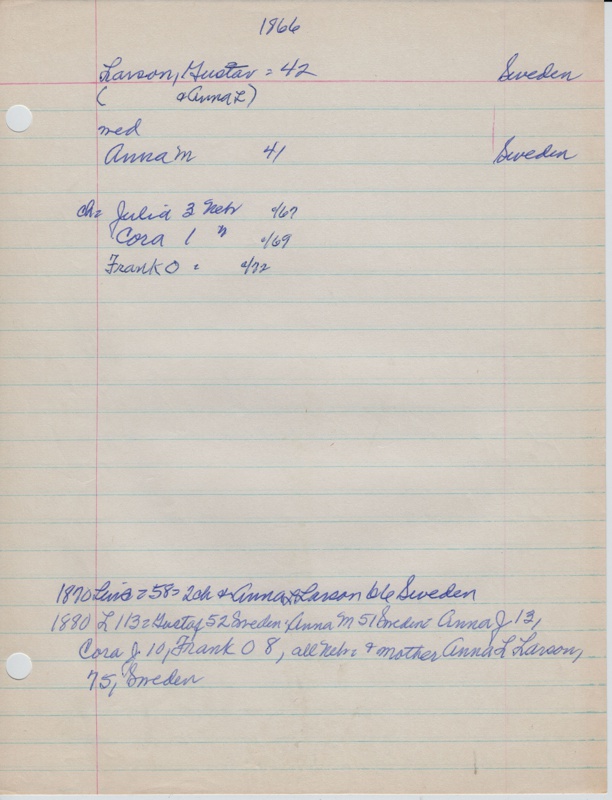 1866
Larson, Gustav = 42 Sweden
( & Anna L)
med
Anna M 41 Sweden
ch= Julia 3 Nebr c/67
Cora 1 " c/69
Frank O = c/72
1870 = 58 = 2ch & Anna L Larson 66 Sweden
1880 L 113 = Gustaf 52 Sweden = Anna M 51 Sweden = Anna J. 13,
Cora J. 10, Frank O 8, all Nebr = & mother Anna L Larson,
75, Sweden